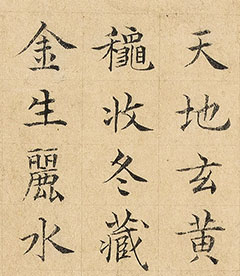 天地玄黄
龝收冬藏
金生麗水